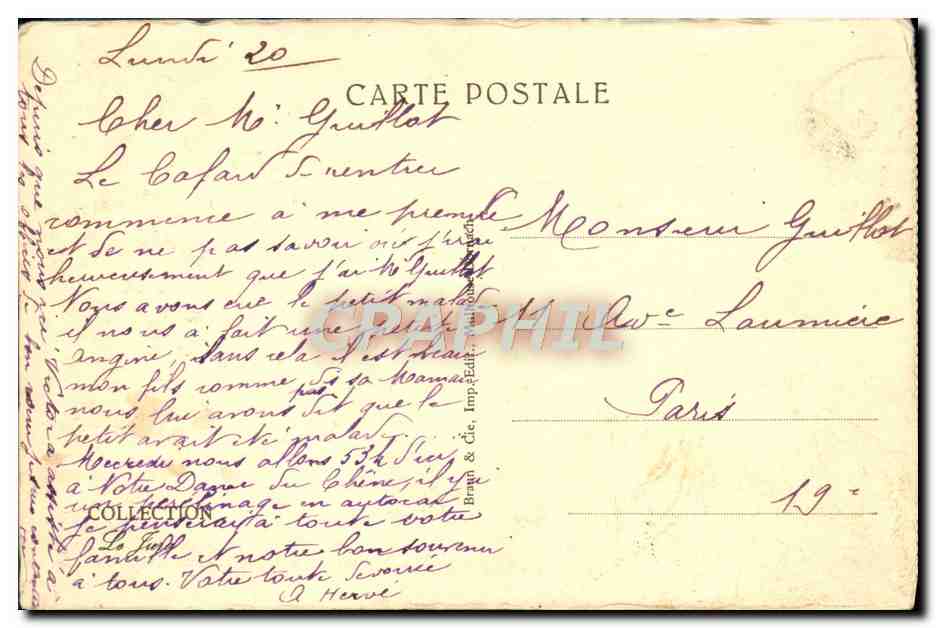 Lundi 20
CARTE POSTALE
Cher Mr Guillot
Le Cafard de rentrer
commence à me prendre
et de ne pas savoir où j'irai
heureusement que j'ai Mr Guillot.
Nous avons eu le petit malade
il nous a fait une petite
angine, sans cela il est beau
mon fils comme dis sa Maman
nous lui avons pas dit que le
petit avait été malade
Mecredi nous allons 53k d'ici
à Notre Dame du Chêne, il y a
un pèrelinage en autocar
je penserai à toute votre
famille et notre bon souvenir
à tous. Votre toute dévouée
A Hervé
Depuis que nous
à
tous les offices
Monsieur Guillot
11 Ave Laumière
Paris
19e
Braun & Cie, Imp.-Edit., Mulhouse-Dornach
COLLECTION
CPAPHIL